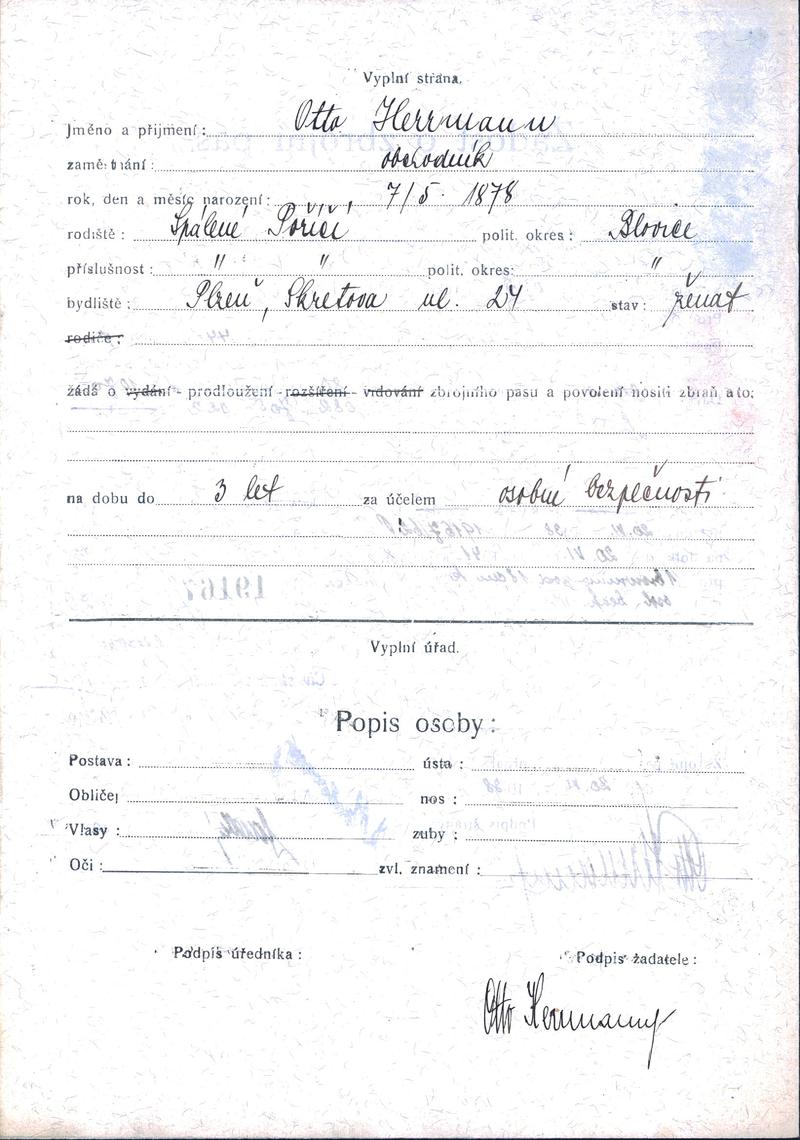 Vyplní strana.
Jméno a přijmení: Otto Herrmann
zaměstnání: obchodník
rok, den a měsíc narození: 7/5. 1878
rodiště: Spálené Poříčí polit. okres: Blovice
příslušnost: " " polit. okres: "
bydliště: Plzeň, Skretova ul. 24 stav: ženat
rodiče:
žádá o vydání - prodloužení - rozšíření - vidování zbrojního pasu a povolení nositi zbraň a to:
na dobu do 3 let za účelem osobné bezpečnosti
19167
Vyplní úřad.
Popis osoby:
Postava: ústa:
Obličej nos:
Vlasy: zuby:
Oči: zvl. znamení:
Podpis úředníka: Podpis žadatele:
Otto Herrmann